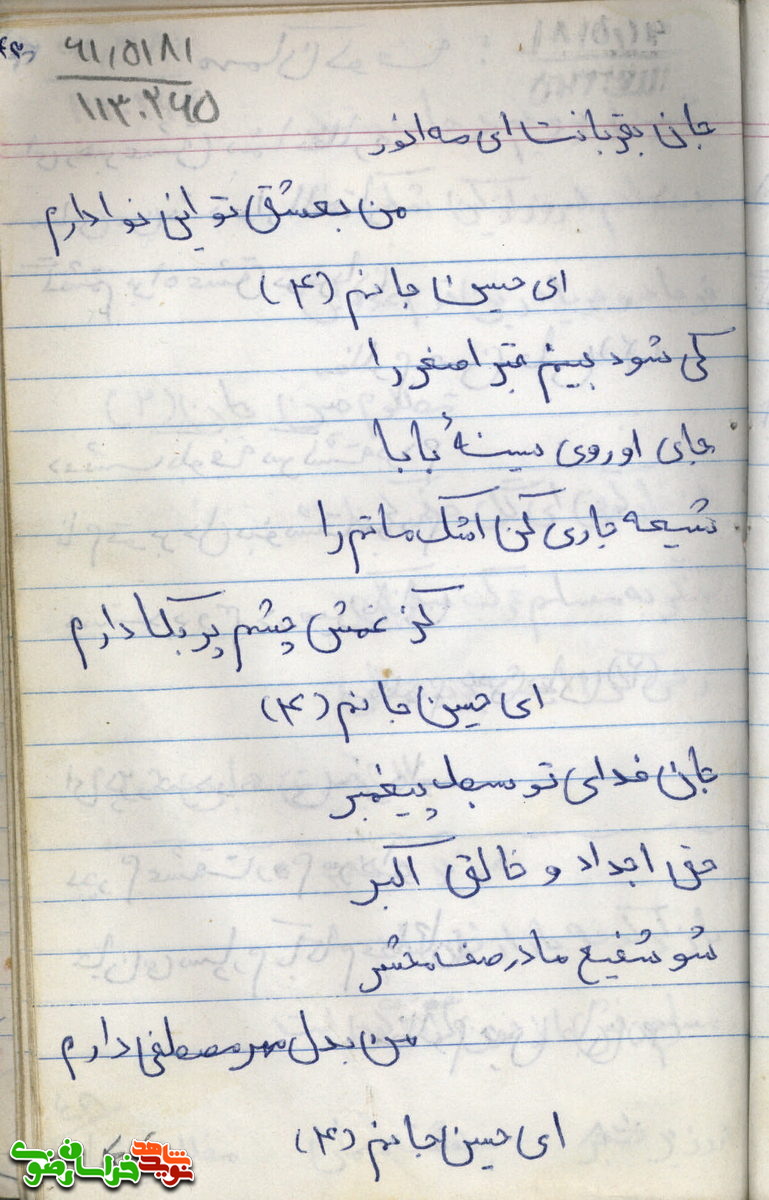 ۶۱,۵۱۸۱
۱۱۳۰۲۶۵
جان بقربانت ای مه انور
من بعشق تو این نوا دارم
ای حسین جانم (۴)
کی شود بینم قبر اصغر را
جای او روی سینهٔ بابا
شیعه جاری کن اشک ماتم را
کز غمش چشم پر بکا دارم
ای حسین جانم (۴)
جان فدای تو سبط پیغمبر
حق اجداد و خالق اکبر
شو شفیع ما در صف محشر
من بدل مهر مصطفی دارم
ای حسین جانم (۴)
نوید شاهد خراسان رضوی